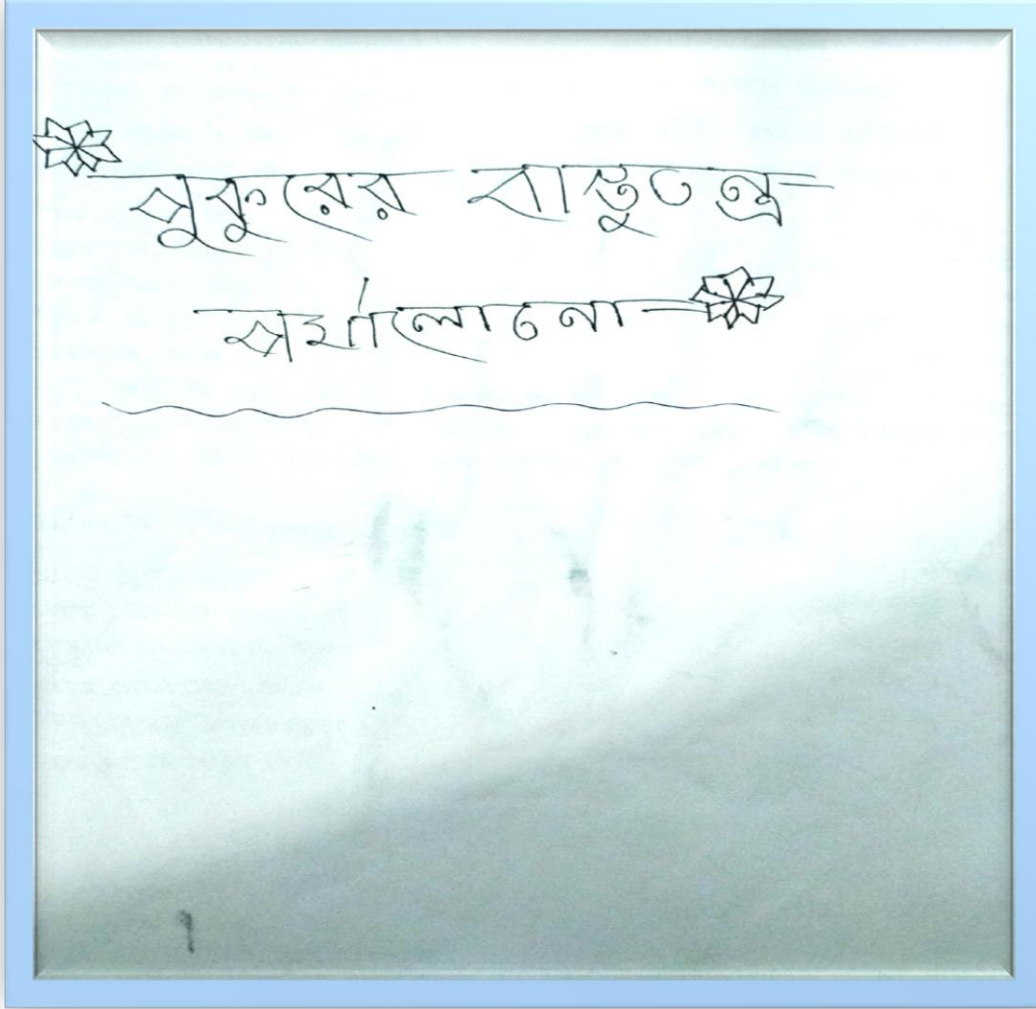 পুকুরের বাস্তুতন্ত্র
পর্যালোচনা